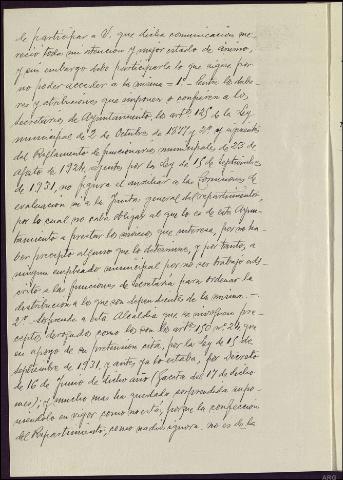 de participar a V. que dicha comunicación me-
reció toda mi atención y mejor estado de ánimo,
y sin embargo debo participarle lo que sigue por
no poder acceder a la misma = 1º - Entre los debe-
res y atribuciones que imponen o confieren a los
secretarios de Ayuntamiento los artºs 125 de la Ley
municipal de 2 de Octubre de 1877 y 2º y siguientes
del Reglamento de funcionarios municipales de 23 de
agosto de 1924, vigentes por la Ley de 15 de septiembre
de 1931, no figura el auxiliar a las Comisiones de
evaluación ni a la Junta general del repartimiento,
por lo cual no cabe obligar al que lo es de este Ayun-
tamiento a prestar los servicios que interesa, por no ha-
ber precepto alguno que lo determine, y por tanto, a
ningun empleado municipal por no ser trabajo ads-
crito a las funciones de Secretaría para ordenar la
distribución a los que son dependientes de la misma. =
2º Sorprende a esta Alcaldía que se invoquen pre-
ceptos derogados como los son los artºs 150 nº 24, que
en apoyo de su pretensión cita, por la Ley de 15 de
septiembre de 1931, y antes ya lo estaba, por Decreto
de 16 de Junio de dicho año (Gaceta del 17 de dicho
mes); y mucho mas ha quedado sorprendida supo-
niéndolo en vigor como no está, porque la confección
del Repartimiento, como nadie ignora, no es de la
ARG